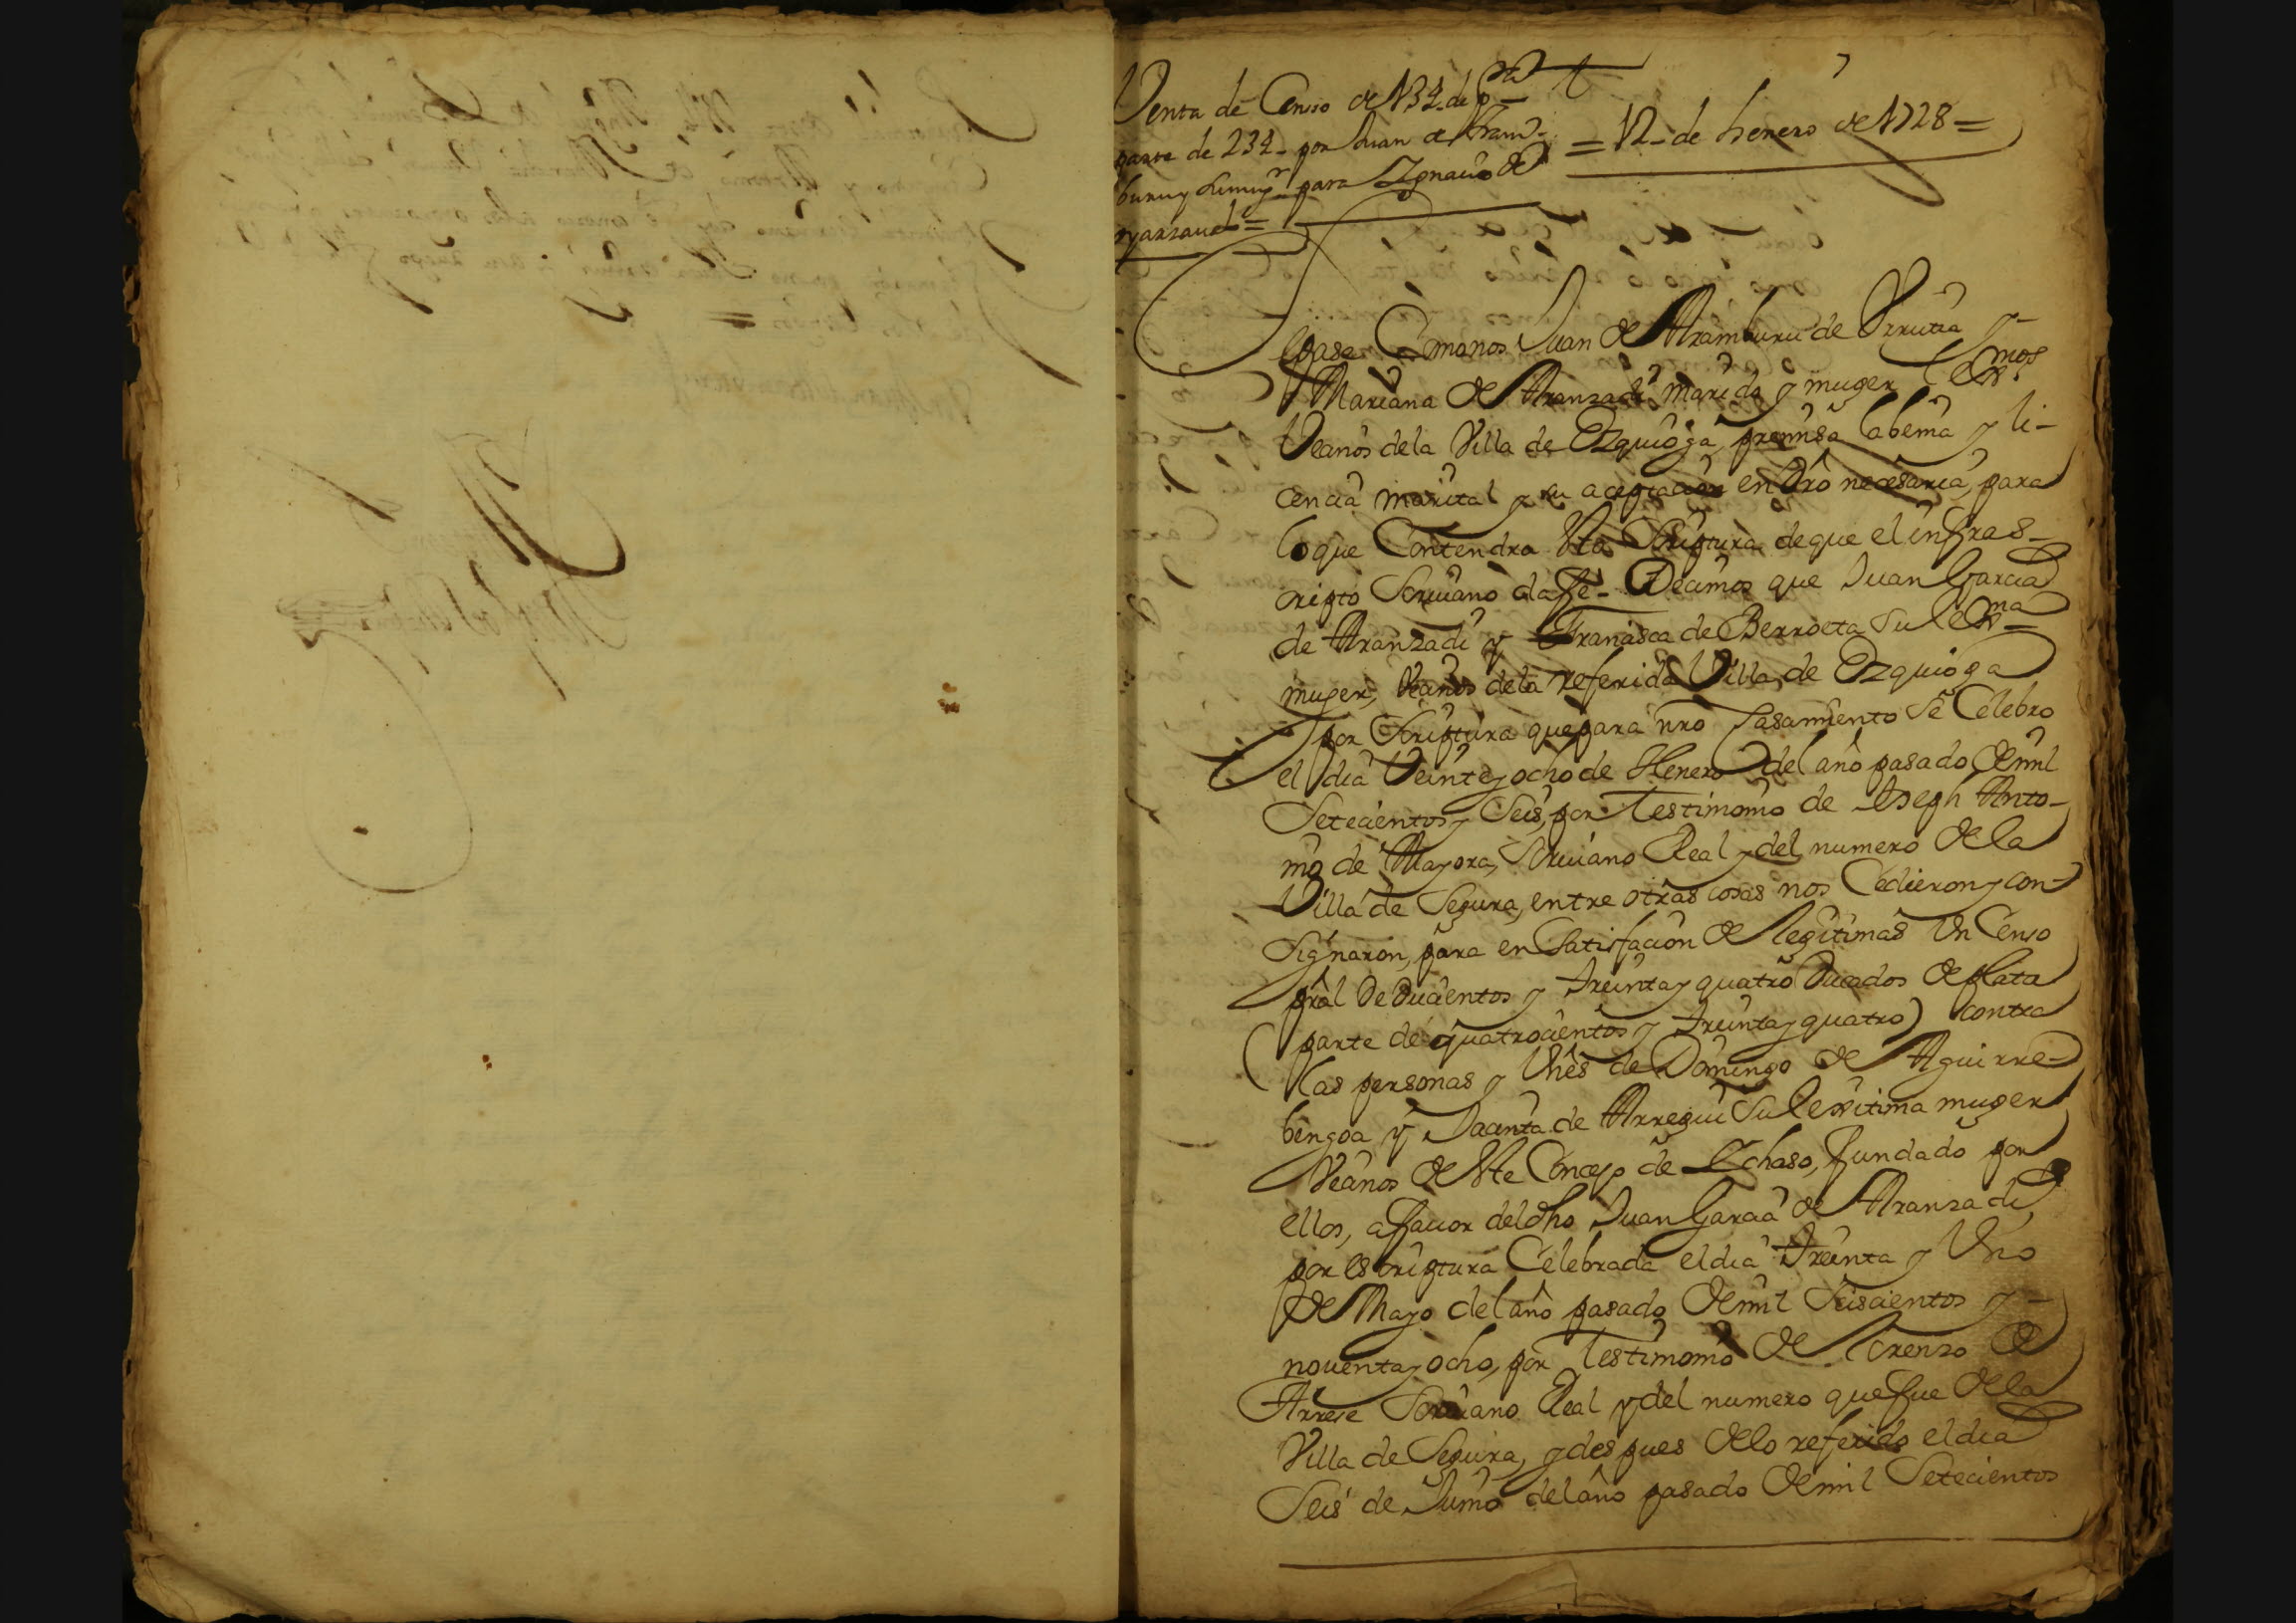 Venta de Censo de 134 de pta
parte de 234 por Juan de Aram-
buru y su mugr para Ygnacio de
oyarzaual =
= 12 de henero de 1728 =
Sepase Comonos Juan de Aramburu de Vrrutia y
Mariana de Aranzadi marido y muger lexmos
Vecinos dela Villa de Ezquioga, premisa la benia y li-
cencia marital y su aceptacion en dro necesaria, para
lo que Contendra Sta Scriptura de que el infras-
cripto Scriuano da fe - Decimos que Juan Garcia
de Aranzadi y Francisca de Berroeta Su lexma
muger, Vecinos dela referida Villa de Ezquioga
por Scriptura que para nro Casamiento se Celebro
el dia Veinte y ocho de Henero del año pasado de mil
Setecientos y Seis, por Testimonio de Joseph Anto-
nio de Mayora, Scriuano Real y del numero de la
Villa de Segura, entre otras cosas nos Cedieron y con-
signaron, para en Satisfacion de legitimas Vn Censo
pral de ducientos y treinta y quatro Ducados de plata
(parte de quatrocientos y treinta y quatro) contra
las personas y Vnes de Domingo de Aguirre-
bengoa y Jacinta de Arregui su lexitima muger
Vecinos de Ste Concejo de Ychaso, fundado por
ellos, a fauor del dho Juan Garcia de Aranzadi
por escriptura Celebrada el dia treinta y Vno
de Mayo del año pasado de mil Seiscientos y
nouenta y ocho, por Testimonio de Lorenzo de
Arrese Scriuano Real y del numero que fue dela
Villa de Segura, y despues delo referido el dia
Seis de Junio del año pasado de mil Setecientos